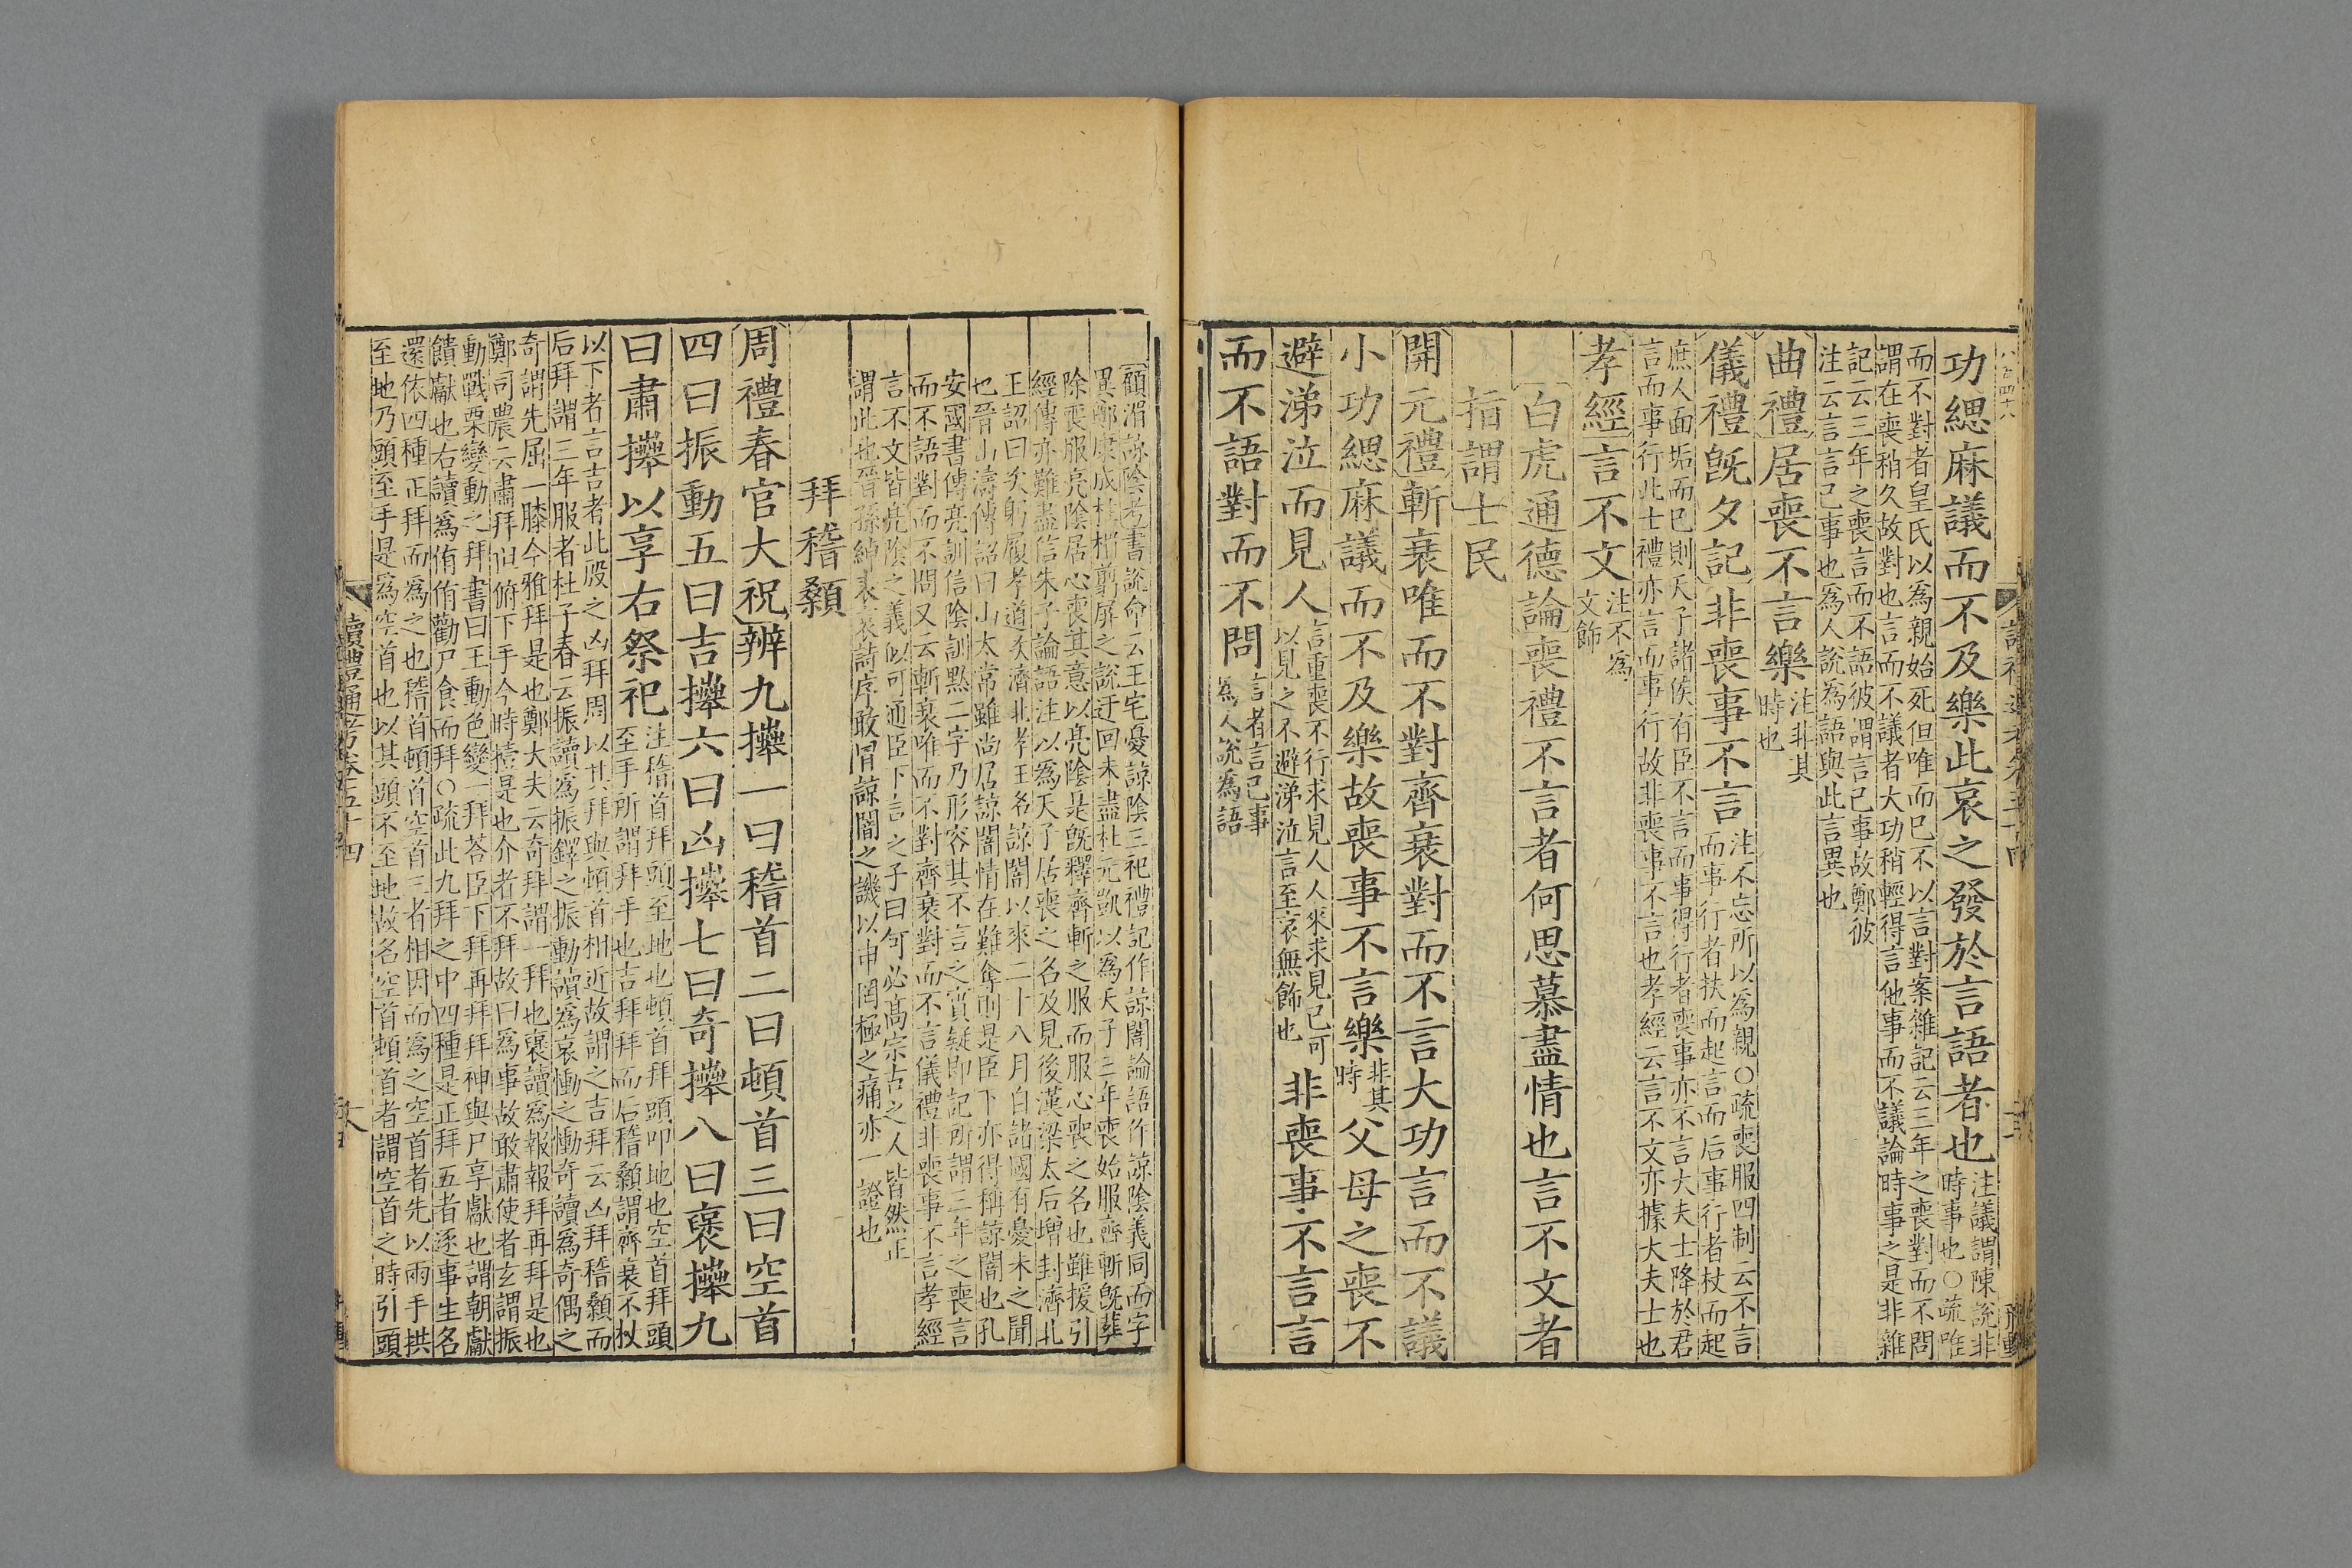 功緦麻議而不及樂此哀之發於言語者也注議謂陳說非
時事也○疏唯
而不對者皇氏以為親始死但唯而已不以言對案雜記云三年之喪對而不問
謂在喪稍久故對也言而不議者大功稍輕得言他事而不議論時事之是非雜
記云三年之喪言而不語彼謂言己事故鄭彼
注云言言己事也為人說為語與此言異也
曲禮居喪不言樂注非其
時也
儀禮旣夕記非喪事不言注不忘所以為親○疏喪服四制云不言
而事行者扶而起言而后事行者杖而起
庶人面垢而已則天子諸侯有臣不言而事得行者喪事亦不言大夫士降於君
言而事行此士禮亦言而事行故非喪事不言也孝經云言不文亦據大夫士也
孝經言不文注不為
文飾
白虎通德論喪禮不言者何思慕盡情也言不文者
指謂士民
開元禮斬衰唯而不對齊衰對而不言大功言而不議
小功緦麻議而不及樂故喪事不言樂非其
時父母之喪不
避涕泣而見人言重喪不行求見人人來求見己可
以見之不避涕泣言至哀無飾也非喪事不言言
而不語對而不問言者言己事
為人說為語
顧湄諒陰考書說命云王宅憂諒陰三祀禮記作諒闇論語作諒陰義同而字
異鄭康成柱楣翦屏之說迂回未盡杜元凱以為天子三年喪始服齊斬旣葬
除喪服亮陰居心喪其意以亮陰是旣釋齊斬之服而服心喪之名也雖援引
經傳亦難盡信朱子論語注以為天子居喪之名及見後漢梁太后增封濟北
王詔曰次躬履孝道次濟北孝王名諒闇以來二十八月自諸國有憂未之聞
也晉山濤傳詔曰山太常雖尚居諒闇情在難奪則是臣下亦得稱諒闇也孔
安國書傳亮訓信陰訓默二字乃形容其不言之實疑即記所謂三年之喪言
而不語對而不問又云斬衰唯而不對齊衰對而不言儀禮非喪事不言孝經
言不文皆亮陰之義似可通臣下言之子曰何必高宗古之人皆然正
謂此也晉孫綽表哀詩序敢冒諒闇之譏以申罔極之痛亦一證也
拜稽顙
周禮春官大祝辨九𢷎一曰稽首二曰頓首三曰空首
四曰振動五曰吉𢷎六曰凶𢷎七曰奇𢷎八曰褒𢷎九
曰肅𢷎以享右祭祀注稽首拜頭至地也頓首拜頭叩地也空首拜頭
至手所謂拜手也吉拜拜而后稽顙謂齊衰不杖
以下者言吉者此殷之凶拜周以其拜與頓首相近故謂之吉拜云凶拜稽顙而
后拜謂三年服者杜子春云振讀為振鐸之振動讀為哀慟之慟奇讀為奇偶之
奇謂先屈一膝今雅拜是也鄭大夫云奇拜謂一拜也褒讀為報報拜再拜是也
鄭司農云肅拜但俯下手今時撎是也介者不拜故曰為事故敢肅使者玄謂振
動戰栗變動之拜書曰王動色變一拜荅臣下拜再拜拜神與尸享獻也謂朝獻
饋獻也右讀為侑侑勸尸食而拜○疏此九拜之中四種是正拜五者逐事生名
還依四種正拜而為之也稽首頓首空首三者相因而為之空首者先以兩手拱
至地乃頭至手是為空首也以其頭不至地故名空首頓首者謂空首之時引頭
讀禮通考卷五十四